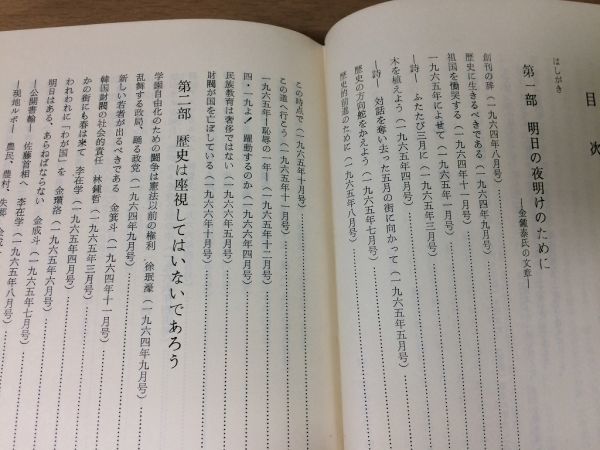 目次
はしがき
第一部　明日の夜明けのために
―金鍾泰氏の文章―
創刊の辞（一九六四年八月号）
歴史に生きるべきである（一九六四年九月号）
祖国を慟哭する（一九六四年十一月号）
一九六五年によせて（一九六五年一月号）
―詩―　ふたたび三月に（一九六五年三月号）
木を植えよう（一九六五年四月号）
―詩―　対話を奪い去った五月の街に向かって（一九六五年五月号）
歴史の方向舵をかえよう（一九六五年七月号）
歴史的前進のために（一九六五年八月号）
この時点で（一九六五年十月号）
この道へ行こう（一九六五年十一月号）
一九六五年―恥辱の一年―（一九六五年十二月号）
四・一九よ！　躍動するのか（一九六六年四月号）
民族教育は奢侈ではない（一九六六年五月号）
財閥が国を亡ぼしている（一九六六年十月号）
第二部　歴史は座視してはいないであろう
学園自由化のための闘争は憲法以前の権利　徐珉濠（一九六四年九月号）
乱舞する政局、踊る政党（一九六四年九月号）
新しい若者が出るべきである　金箕斗（一九六四年十一月号）
韓国財閥の社会的責任　林鍾哲（一九六五年三月号）
かの街にも春は来て　李在学（一九六五年四月号）
われわれに「わが国」を　金瓊洛（一九六五年六月号）
明日はある、あらねばならない　金成斗（一九六五年七月号）
―公開書翰―　佐藤首相へ　李在学（一九六五年八月号）
―現地ルポ―　農民、農村、失郷　金成